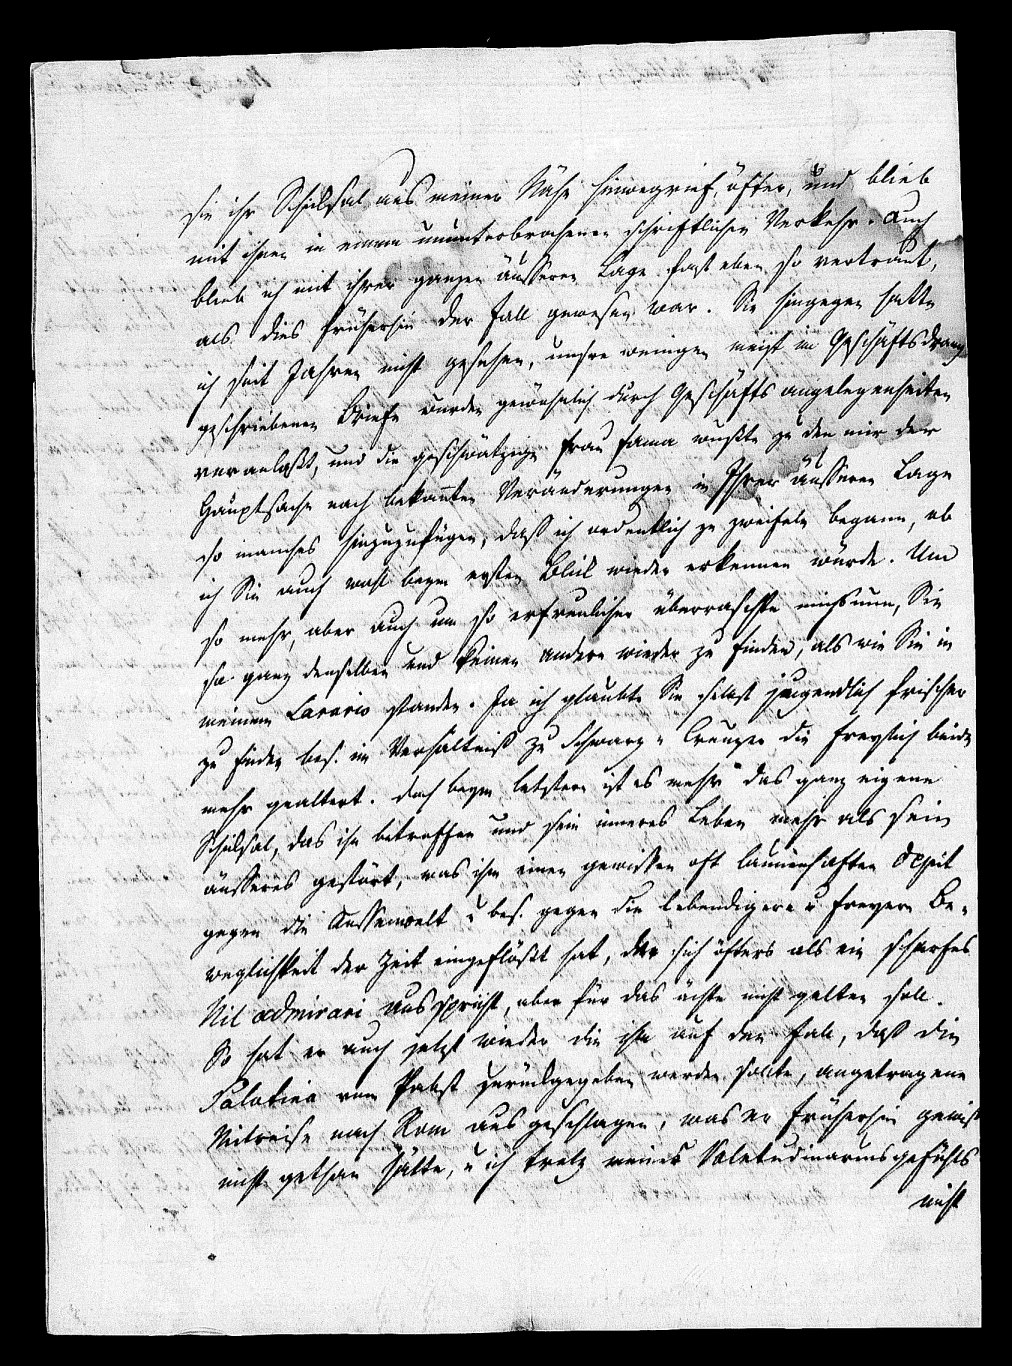 sie ihr Schicksal aus meiner Nähe hinwegrief öfter, und blieb
mit ihnen in einem ununterbrochenen schriftlichen Verkehr. Auch
blieb ich mit ihrer ganzen äusseren Lage fast eben so vertraut,
als dies früherhin der Fall gewesen war. Sie hingegen hatte
ich seit Jahren nicht gesehen, unsre wenigen meist im Geschäftsdrang
geschriebenen Briefe wurden gewöhnlich durch Geschäftsangelegenheiten
veranlaßt, und die geschwätzige Frau Fama wußte zu den mir der
Hauptsache nach bekannten Veränderungen in Ihrer äusseren Lage
so manches hinzuzufügen, daß ich ordentlich zu zweifeln begann, ob
ich Sie auch wohl beym ersten Blick wieder erkennen würde. Um
so mehr, aber auch um so erfreulicher überraschte michs nun, Sie
so ganz denselben und keinen andern wieder zu finden, als wie Sie in
meinem Larario standen. Ja ich glaubte Sie selbst jugendlich frischer
zu finden bes. im Verhältniß zu Schwarz u Creuzer die freylich beide
mehr gealtert. Doch beym letztern ist es mehr das ganz eigene
Schicksal, das ihn betroffen und sein inneres Leben mehr als sein
äusseres gestört, was ihm einen gewissen oft launenhaften Depit
gegen die Aussenwelt u bes. gegen die lebendigere u freyere Be-
weglichkeit der Zeit eingeflößt hat, der sich öfters als ein scharfes
Nil admirari ausspricht, aber für das ächte nicht gelten soll.
So hat er auch jetzt wieder die ihm auf den Fall, daß die
Palatina vom Pabst zurückgegeben werden sollte, angetragene
Mitreise nach Rom ausgeschlagen, was er früherhin gewiß
nicht gethan hätte, u ich trotz meines Valetudinariusgefühls
nicht